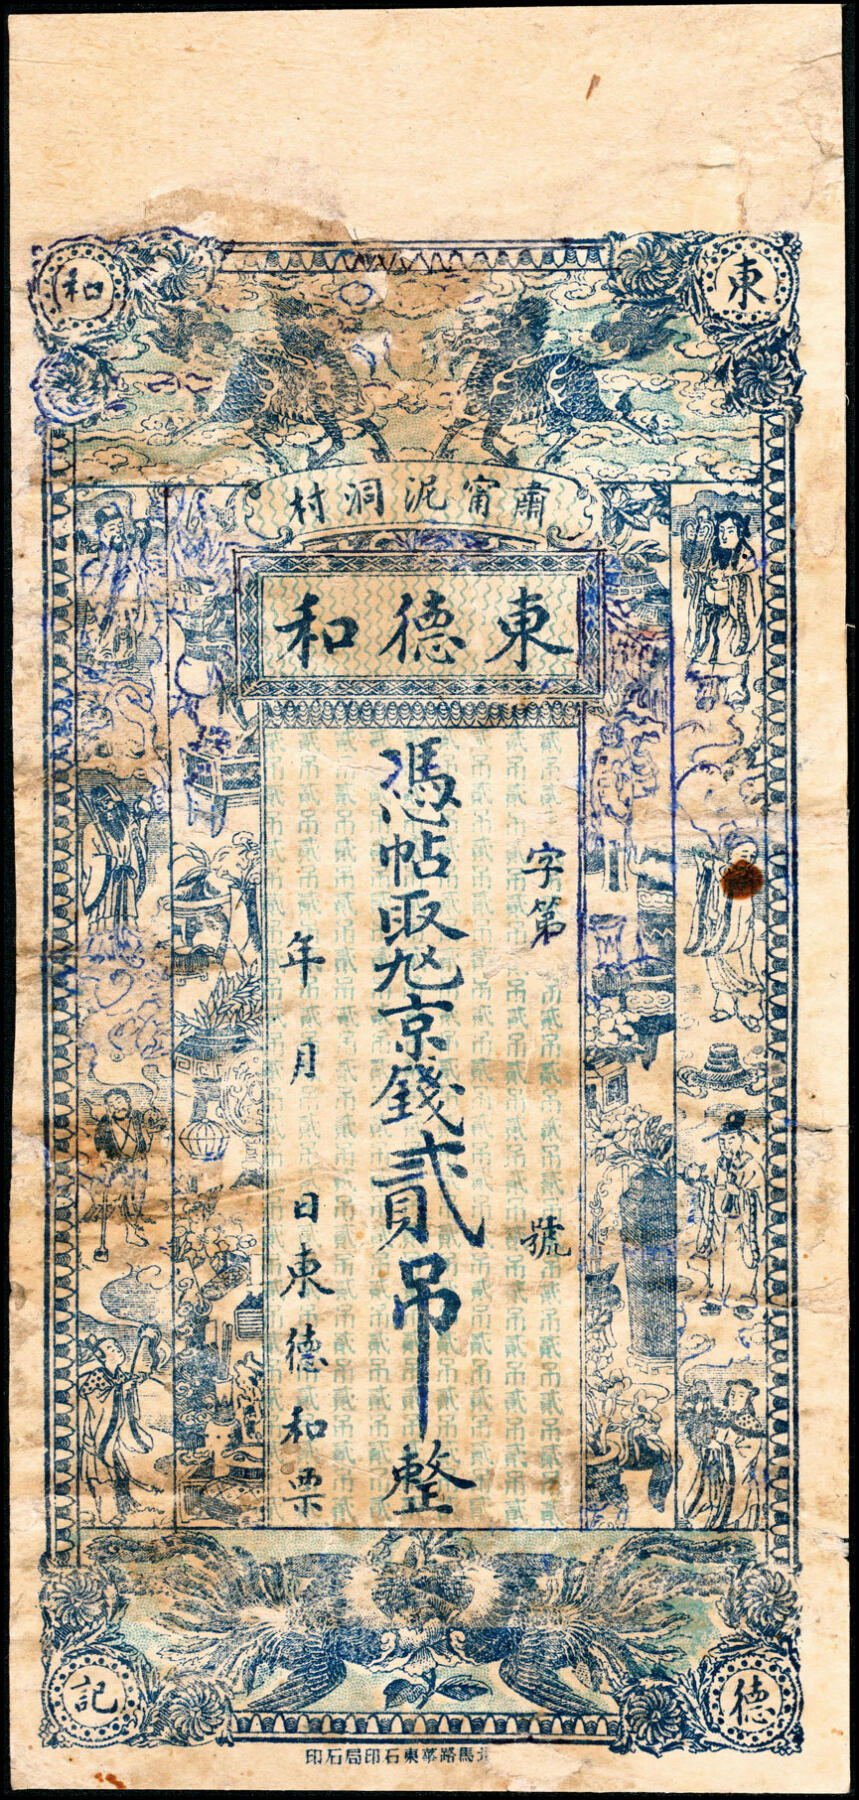 東
德
和
記
肅甯泥洞村
東德和
字第 號
憑帖取㐌京錢貳吊整
年 月 日東德和票
馬路華東石印局石印